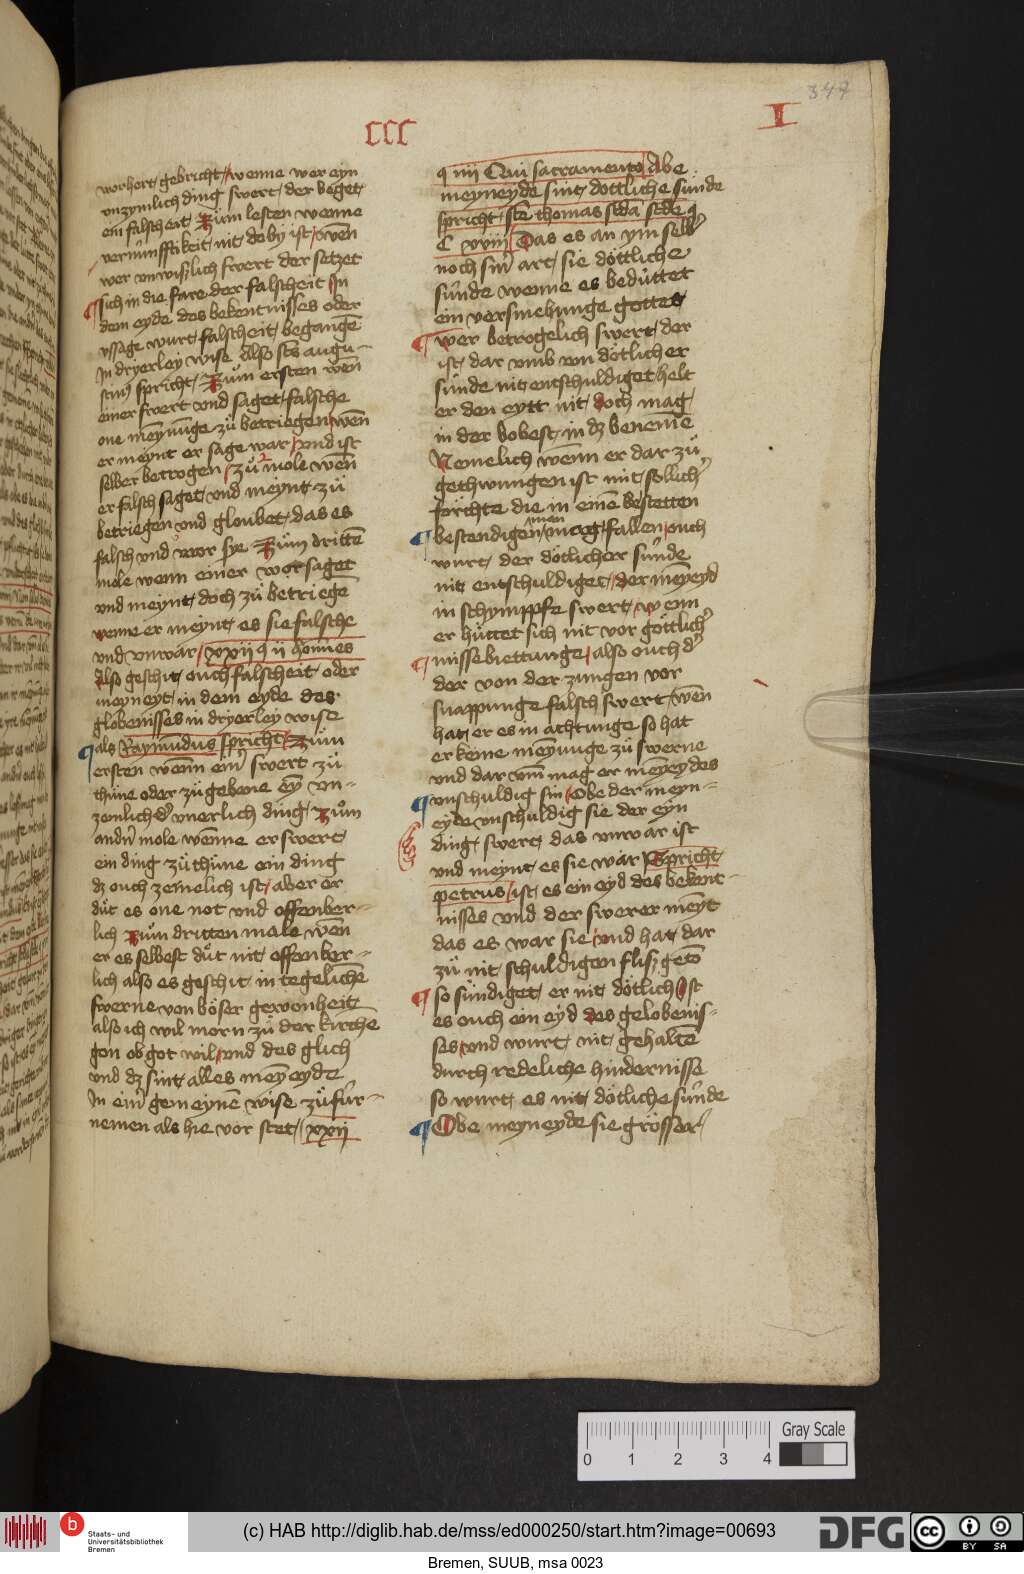 347
CCC
I
worhort gebricht wenne wer eyn
vnzymlich ding swert der beget
ein falscheit Zum lesten wenne
vernunfftikeit nit do by ist wen
wer vnwißlich swert der setzet
sich in die fare der falscheit In
dem eyde des bekentnisses oder
vssage wurt falscheit begange
In dryerley wise Also sts augu-
stinus spricht Zum ersten wen
einer swert vnd saget falsche
one meynunge zu betriegen wen
er meynt er sage war vnd ist
selber betrogen zu 2 mole wen
er falsch saget vnd meynt zu
betriegen vnd gloubet das es
falsch vnd wor sye Zum dritte
mole wenn einer wor saget
vnd meynt doch zu betriege
wenne er meynt es sie falsche
vnd vnwar xxij q ij homines
Also geschit ouch falscheit oder
meyneyt in dem eyde des
globenisses in dryerley wise
als Raymundus spricht Zum
ersten wenn ein swert zu
thune oder zu gebene ey vn-
zemliches vnerlich ding Zum
andern mole wenne er swert
ein ding zu thune ein ding
dz ouch zemelich ist aber er
dut es one not vnd offenber-
lich Zum dritten male wen
er es selbest dut nit offenber-
lich also es geschit in tegeliche
swerne von böser gewonheit
also ich wil morn zu der kirche
gen ob got wil vnd des glich
vnd dz sint alles meyeyde
In ein gemeyne wise zu für-
nemen als hie vor stet xxij
q iiij Qui sacramento Abe
meyneyde sint döttliche sunde
spricht ste thomas scda scde q
C xviij Das es an ym selb
noch siner art sie döttliche
sunde wenne es beduttet
ein versmehunge gottes
Wer betrogelich swert der
ist dar vmb von dötlicher
sunde nit entschuldiget helt
er den eytt nit doch mag
in der bobest in dz beneme
Nemelich wenn er dar zu
gethwungen ist mit sollich
forchte die in eine bestetten
bestendigen man mag fallen ouch
wurt der dötlicher sunde
nit entschuldiget der meyeyd
in schympffe swert wenn
er hüttet sich nit vor göttlich
missebiettunge also ouch d
der von der zungen vor
snappunge falsch swert wen
hat er es in achtunge so hat
er keine meynunge zu swerne
vnd dar vm mag er meyeydes
vnschuldig sin Obe der meyn-
eyde vnschuldig sie der eyn
ding swert das vnwar ist
vnd meynt es sie war Spricht
petrus ist es ein eyd des bekent-
nisses vnd der swerer meyt
das es war sie vnd hat dar
zu nit schuldigen fliß geto
so sundiget er nit dötlich Ist
es ouch ein eyd des gelobenis-
ses vnd wurt nit gehalte
durch redeliche hindernisse
so wurt es nit dötliche sunde
Obe meyneyde sie grösser
Gray Scale
0 1 2 3 4
Staats- und
Universitätsbibliothek
Bremen
(c) HAB http://diglib.hab.de/mss/ed000250/start.htm?image=00693
DFG
cc BY SA
Bremen, SUUB, msa 0023